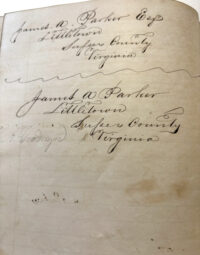 James A. Parker Esqr
Littletown
Sussex County
Virginia
James A Parker
Littletown
Sussex County
Virginia